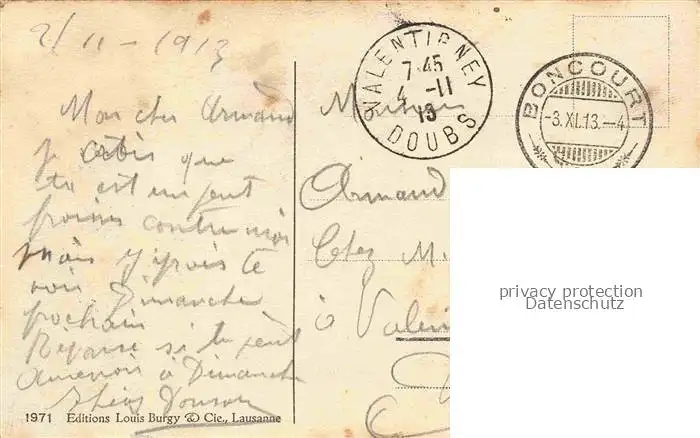 2/11 - 1913
Mon cher Armand
je crois que
tu est un peut
contre moi
Mais j'irais te
voir Dimanche
prochain
Réponse si tu peut
à Dimanche
1971 Editions Louis Burgy & Cie., Lausanne
VALENTIGNEY
7·45
4 -11
13
DOUBS
BONCOURT
-3.XI.13.-4
Monsieur
Armand
Chez M.
à Valen
privacy protection
Datenschutz